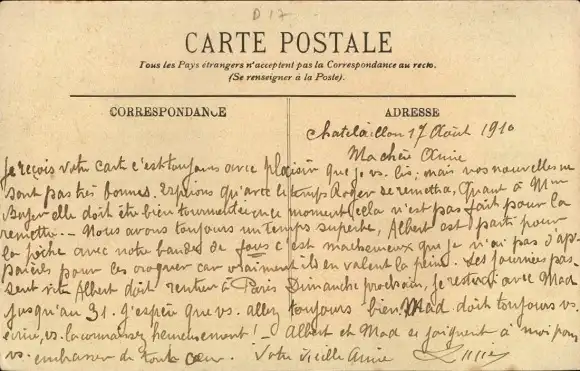 D 17
CARTE POSTALE
Tous les Pays étrangers n'acceptent pas la Correspondance au recto.
(Se renseigner à la Poste).
CORRESPONDANCE
ADRESSE
Chatelaillon 17 Août 1910
Ma chère Amie
Je reçois votre carte c'est toujours avec plaisir que je vs. lis; mais vos nouvelles ne
sont pas très bonnes. Espérons qu'avec le temps Roger se remettra, Quant à Mme
Boyer elle doit être bien tourmentée en ce moment cela n'est pas fait pour la
remettre. - Nous avons toujours un temps superbe, Albert est parti pour
la pêche avec notre bande de fous c'est malheureux que je n'ai pas d'ap-
pareil pour les croquer car vraiment ils en valent la peine. Les journées pas-
sent vite Albert doit rentrer à Paris Dimanche prochain, je resterai avec Mad
jusqu'au 31. J'espère que vs. allez toujours bien. Mad. doit toujours vs.
écrire, vs. la connaissez heureusement! - Albert et Mad se joignent à moi pour
vs. embrasser de tout cœur. Votre vieille Amie